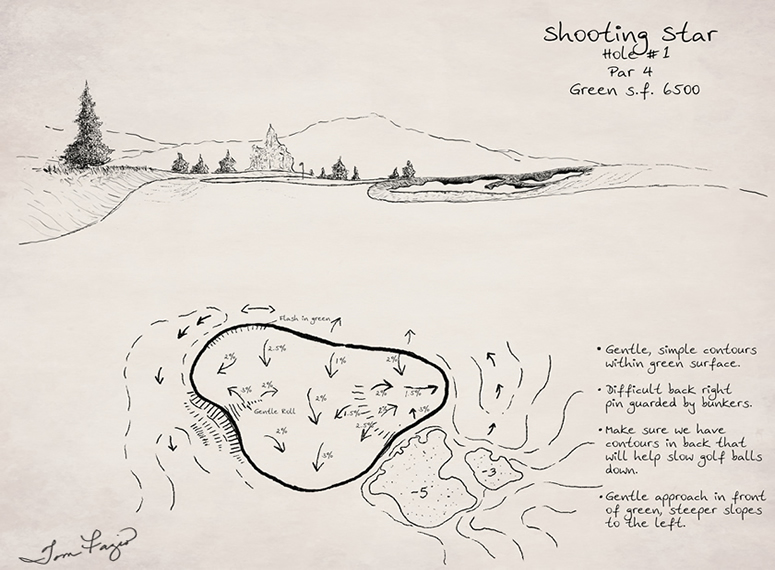 Shooting Star
Hole #1
Par 4
Green s.f. 6500
Flash in green
2%
2.5%
1%
2%
3%
2%
2%
2%
1.5%
Gentle Roll
1.5%
2%
3%
2.5%
2%
3%
-5
-3
• Gentle, simple contours
within green surface.
• Difficult back right
pin guarded by bunkers.
• Make sure we have
contours in back that
will help slow golf balls
down.
• Gentle approach in front
of green, steeper slopes
to the left.
Tom Fazio